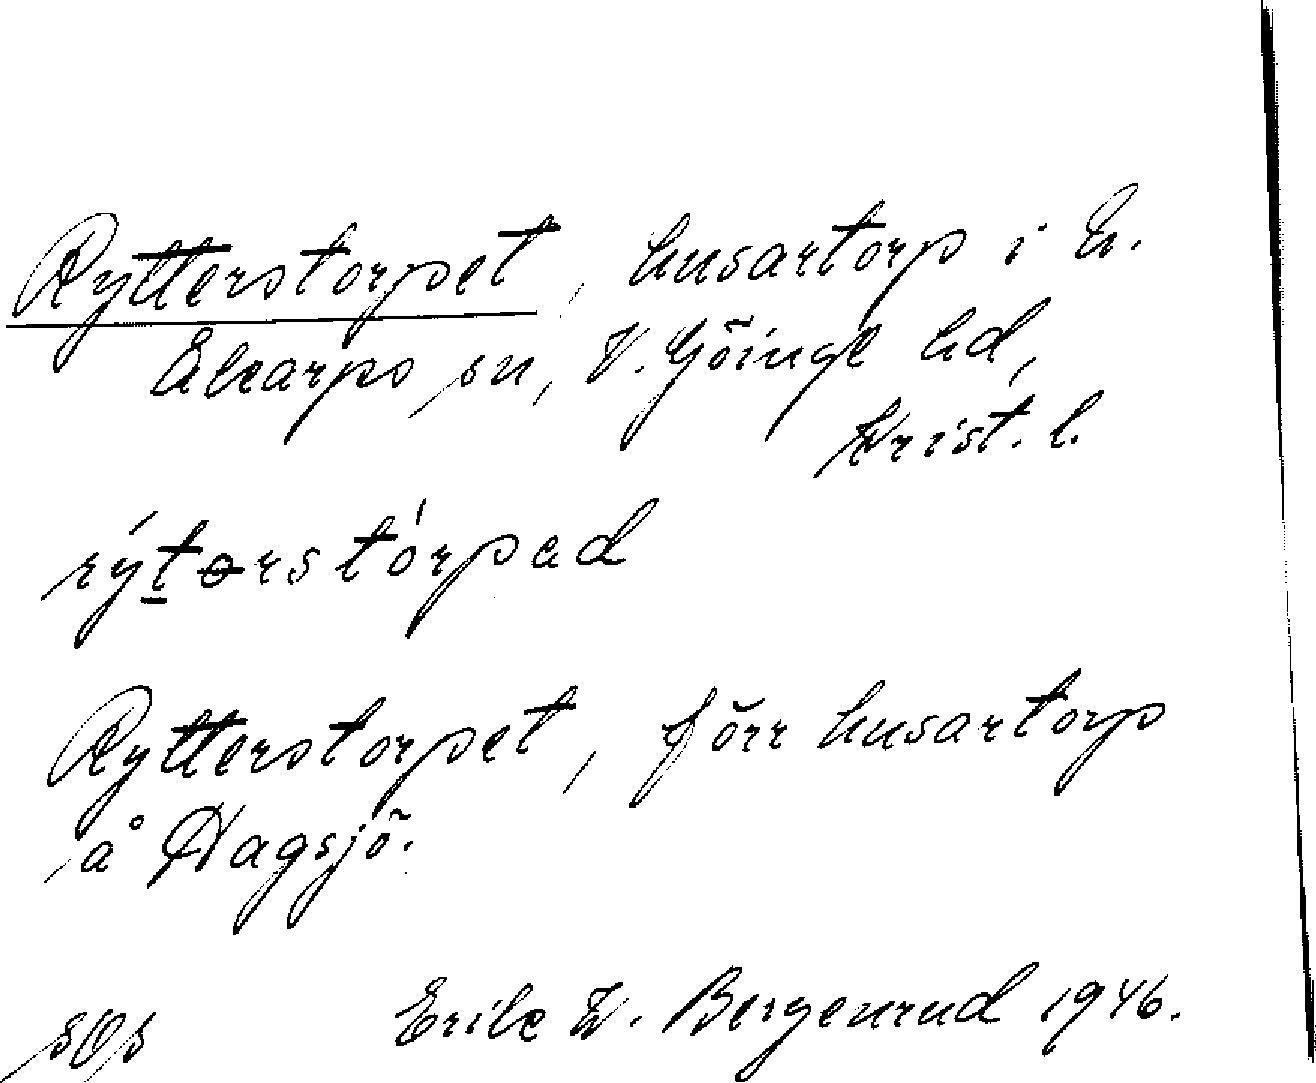 Rytterstorpet, husartorp i N.
Åkarps sn, V. Göinge hd,
Krist. l.
rýt̲ɵrstórpad
Rytterstorpet, förr husartorp
å Hagsjö.
Erik W. Bergenrud 1946.